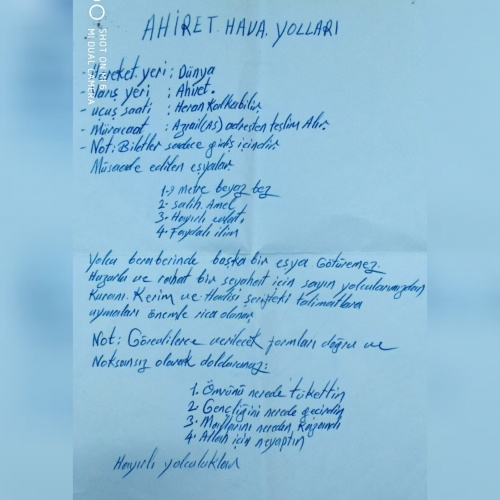 AHİRET HAVA YOLLARI
SHOT ON MI 6
MI DUAL CAMERA
- Hareket yeri : Dünya
- Varış yeri : Ahiret.
- uçuş saati : Heran Kalkabilir
- Müracaat : Azrail (AS) adresten teslim Alır.
- Not: Biletler sadece gidiş içindir
Müsaade edilen eşyalar.
metre beyaz bez
2- salih Amel
3- Hayırlı evlat
4- Faydalı ilim
Yolcu beraberinde başka bir eşya Götüremez.
Huzurlu ve rahat bir seyahat için sayın yolcularımızdan
Kuranı Kerim ve Hadisi şerifteki talimatlara
uymaları önemle rica olunur
Not: Görevlilerce verilecek formları doğru ve
Noksansız olarak doldurunuz:
1. Ömrünü nerede tükettin
2. Gençliğini nerede geçirdin
3. Mallarını nereden kazandı
4. Allah için ne yaptın
Hayırlı yolculuklar